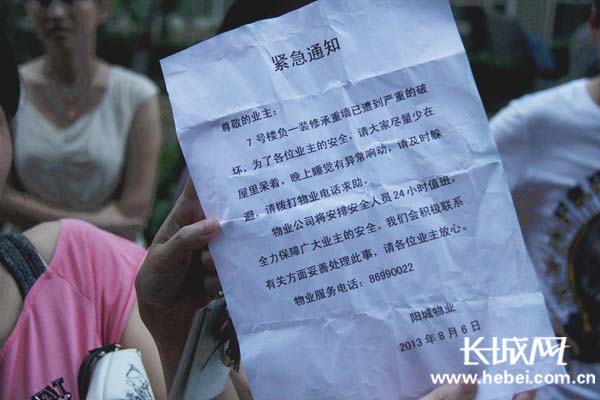 紧急通知
尊敬的业主:
7号楼负一装修承重墙已遭到严重的破
坏,为了各位业主的安全,请大家尽量少在
屋里呆着,晚上睡觉有异常响动,请及时躲
避,请拨打物业电话求助。
物业公司将安排安全人员24小时值班,
全力保障广大业主的安全。我们会积极联系
有关方面妥善处理此事,请各位业主放心。
物业服务电话:86990022
阳城物业
2013年8月6日
长城网
www.hebei.com.cn